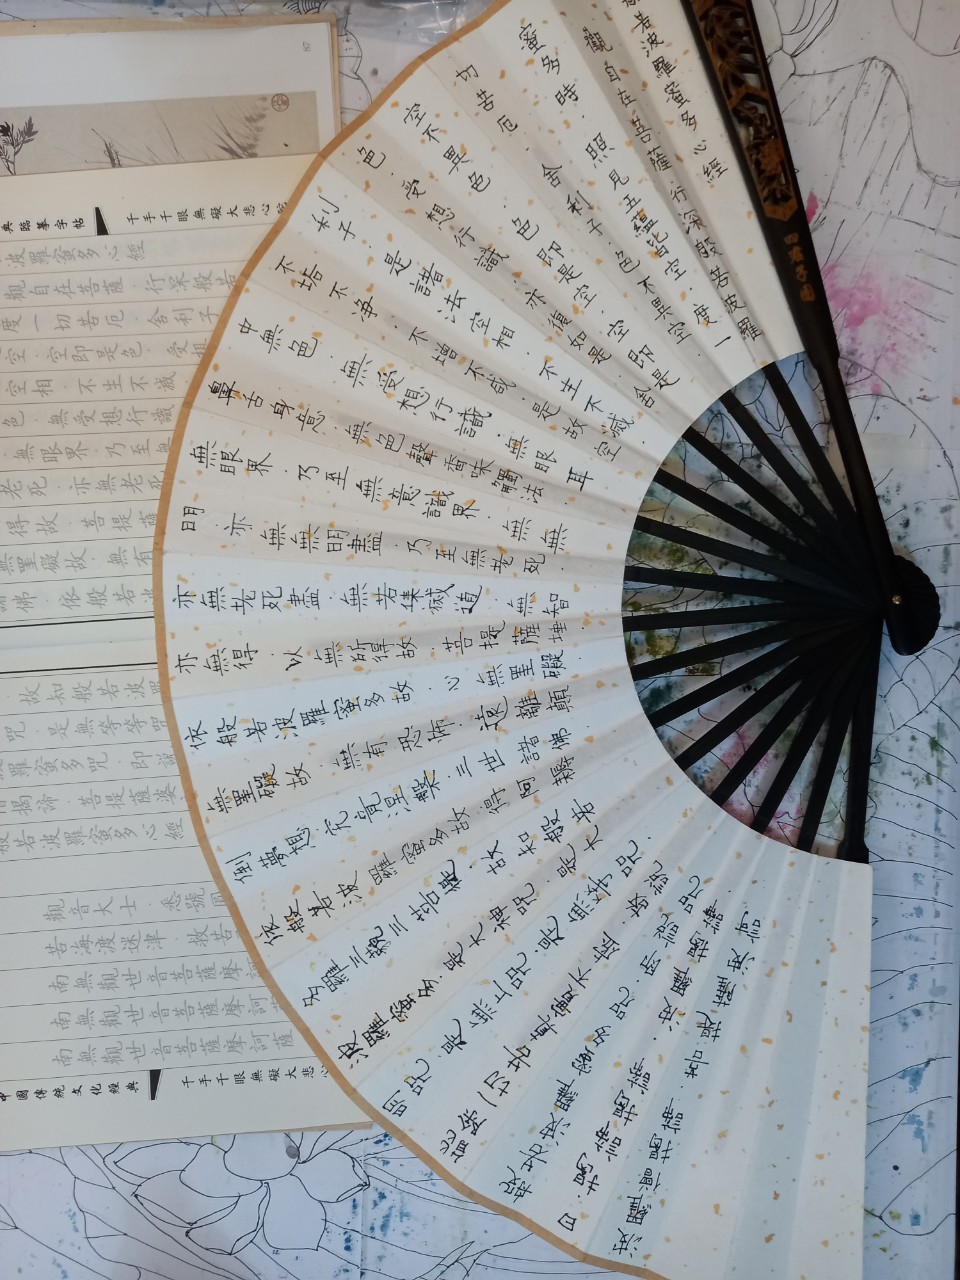 典臨摹字帖
千手千眼無礙大悲心
87
波羅蜜多心經
觀自在菩薩.行深般若
度一切苦厄.舍利子
空.空即是色.受想
空相.不生不滅
色.無受想行識
無眼界.乃至無
老死.亦無老死
得故.菩提薩
無罣礙故.無有
諸佛.依般若波
故知般若波羅
咒.是無等等咒
波羅蜜多咒.即說
揭諦.菩提薩婆
般若波羅蜜多心經
觀音大士.悉號圓
苦海渡迷津.救苦
南無觀世音菩薩摩訶
南無觀世音菩薩摩訶薩
南無觀世音菩薩摩訶薩
南無觀世音菩薩摩訶薩
中國傳統文化經典
千手千眼無礙大悲心
若波羅蜜多心經
觀自在菩薩.行深般若波羅
蜜多時.照見五蘊皆空.度一
切苦厄.舍利子.色不異空.
空不異色.色即是空.空即是
色.受想行識.亦復如是.舍
利子.是諸法空相.不生不滅.
不垢不淨.不增不減.是故空
中無色.無受想行識.無眼耳
鼻舌身意.無色聲香味觸法.
無眼界.乃至無意識界.無無
明.亦無無明盡.乃至無老死
亦無老死盡.無若集滅道.無智
亦無得.以無所得故.菩提薩埵.
依般若波羅蜜多故.心無罣礙.
無罣礙故.無有恐怖.遠離顛
倒夢想.究竟涅槃.三世諸佛
依般若波羅蜜多故.得阿耨
多羅三藐三菩提.故知般若
波羅蜜多是大神咒.是大
明咒.是無上咒.是無等咒.
能除一切苦真實不虛.故說
般若波羅蜜多咒.所說咒
曰.揭諦揭諦.波羅揭諦.
波羅僧揭諦.菩提薩波訶